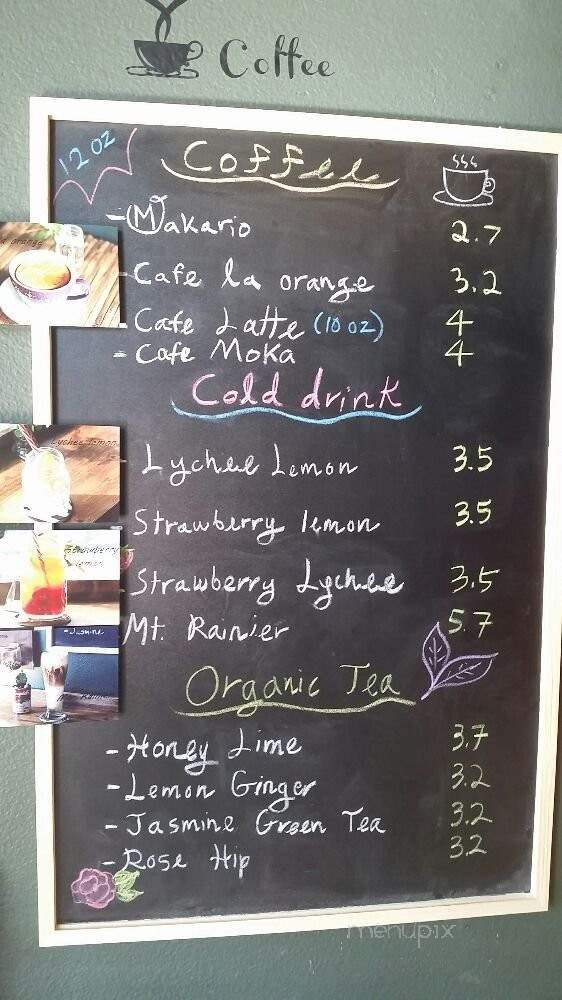 Coffee
12 oz
Coffee
- Makario 2.7
- Cafe la orange 3.2
- Cafe Latte (10 oz) 4
- Cafe Moka 4
Cold drink
Lychee Lemon 3.5
Lychee lemon
Strawberry lemon 3.5
Strawberry lemon
Strawberry Lychee 3.5
Mt. Rainier 5.7
- Jasmine
Organic Tea
- Honey Lime 3.7
- Lemon Ginger 3.2
- Jasmine Green Tea 3.2
- Rose Hip 3.2
menupix